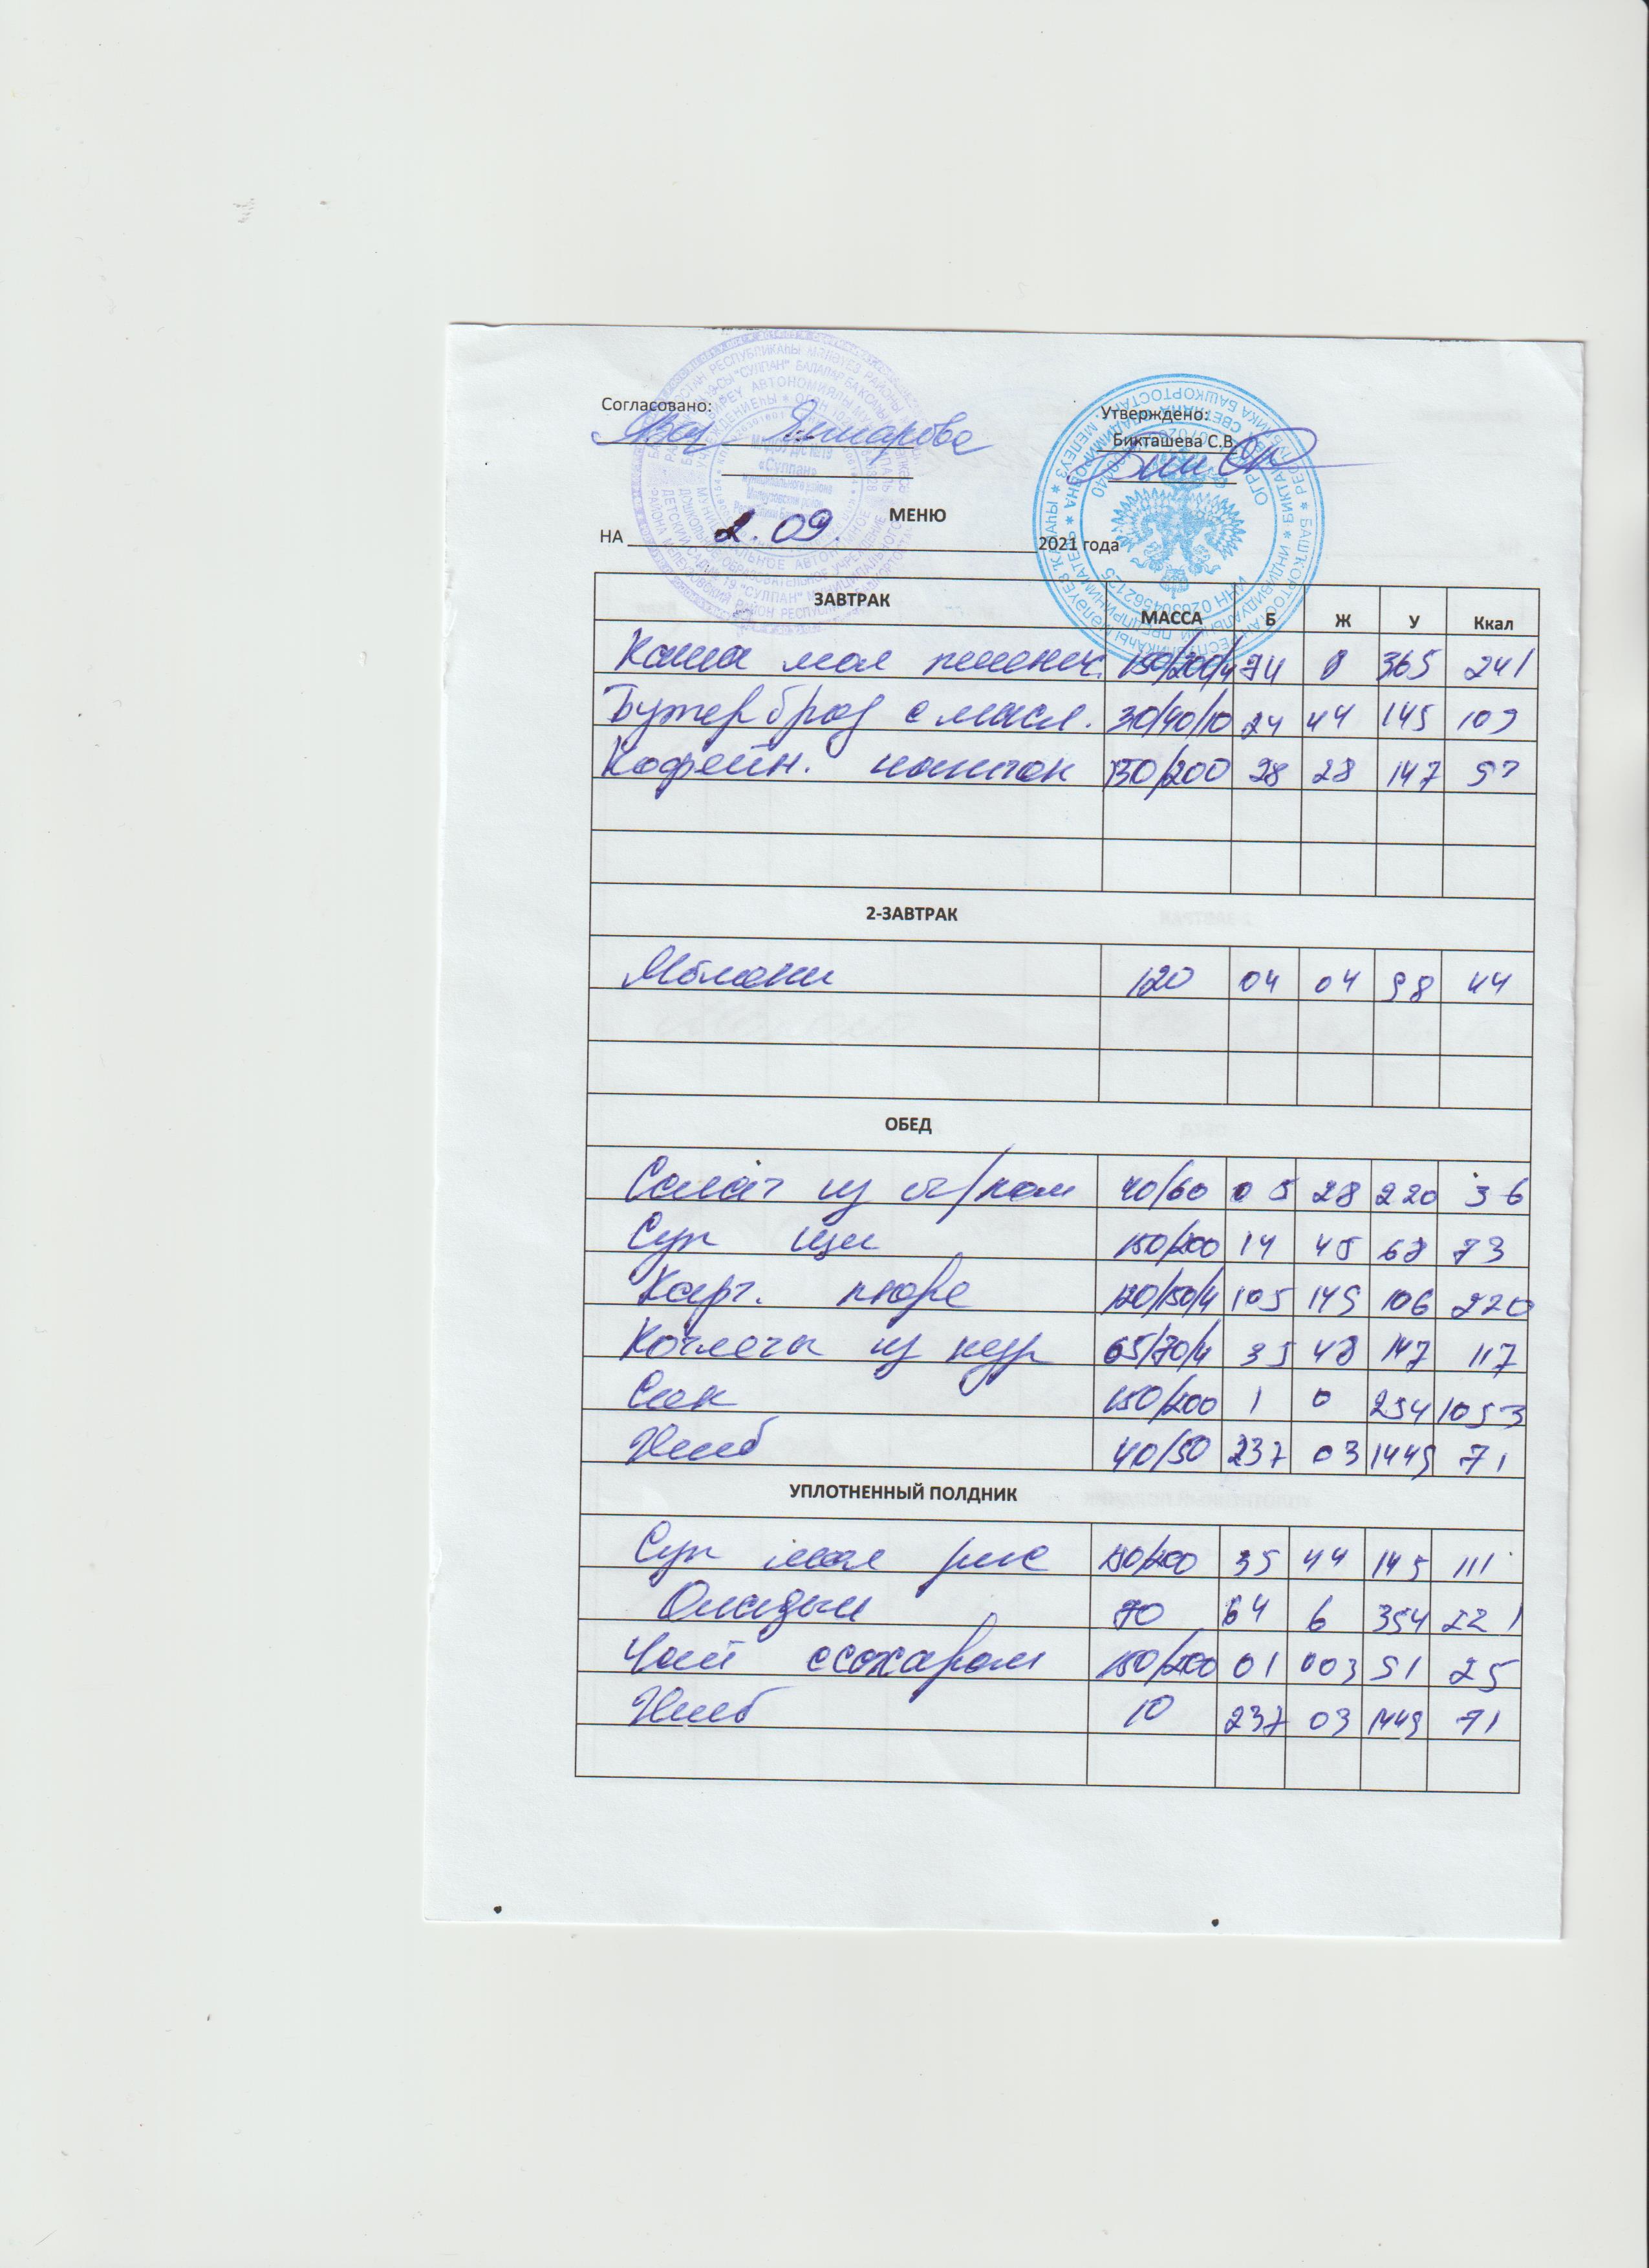 Согласовано:
Утверждено:
Бикташева С.В.
МАДОУ Д/С №19
«Суллан»
МЕНЮ
НА 2.09. 2021 года
ЗАВТРАК МАССА Б Ж У Ккал
Каша мол пшенич. 150/200/4 74 8 365 241
Бутерброд с масл. 30/40/10 24 44 145 109
Кофейн. напиток 150/200 28 28 147 97
2-ЗАВТРАК
Яблоки 120 04 04 98 44
ОБЕД
Салат из ог/пом 40/60 05 28 220 36
Суп щи 150/200 14 45 68 73
Карт. пюре 120/150/4 105 149 106 220
Котлеты из кур 65/70/4 35 48 147 117
Сок 150/200 1 0 254 1053
Хлеб 40/50 237 03 1449 71
УПЛОТНЕННЫЙ ПОЛДНИК
Суп мол рис 150/200 35 44 145 111
Оладьи 70 64 6 354 221
Чай с сахаром 150/200 01 003 51 25
Хлеб 10 237 03 1449 71